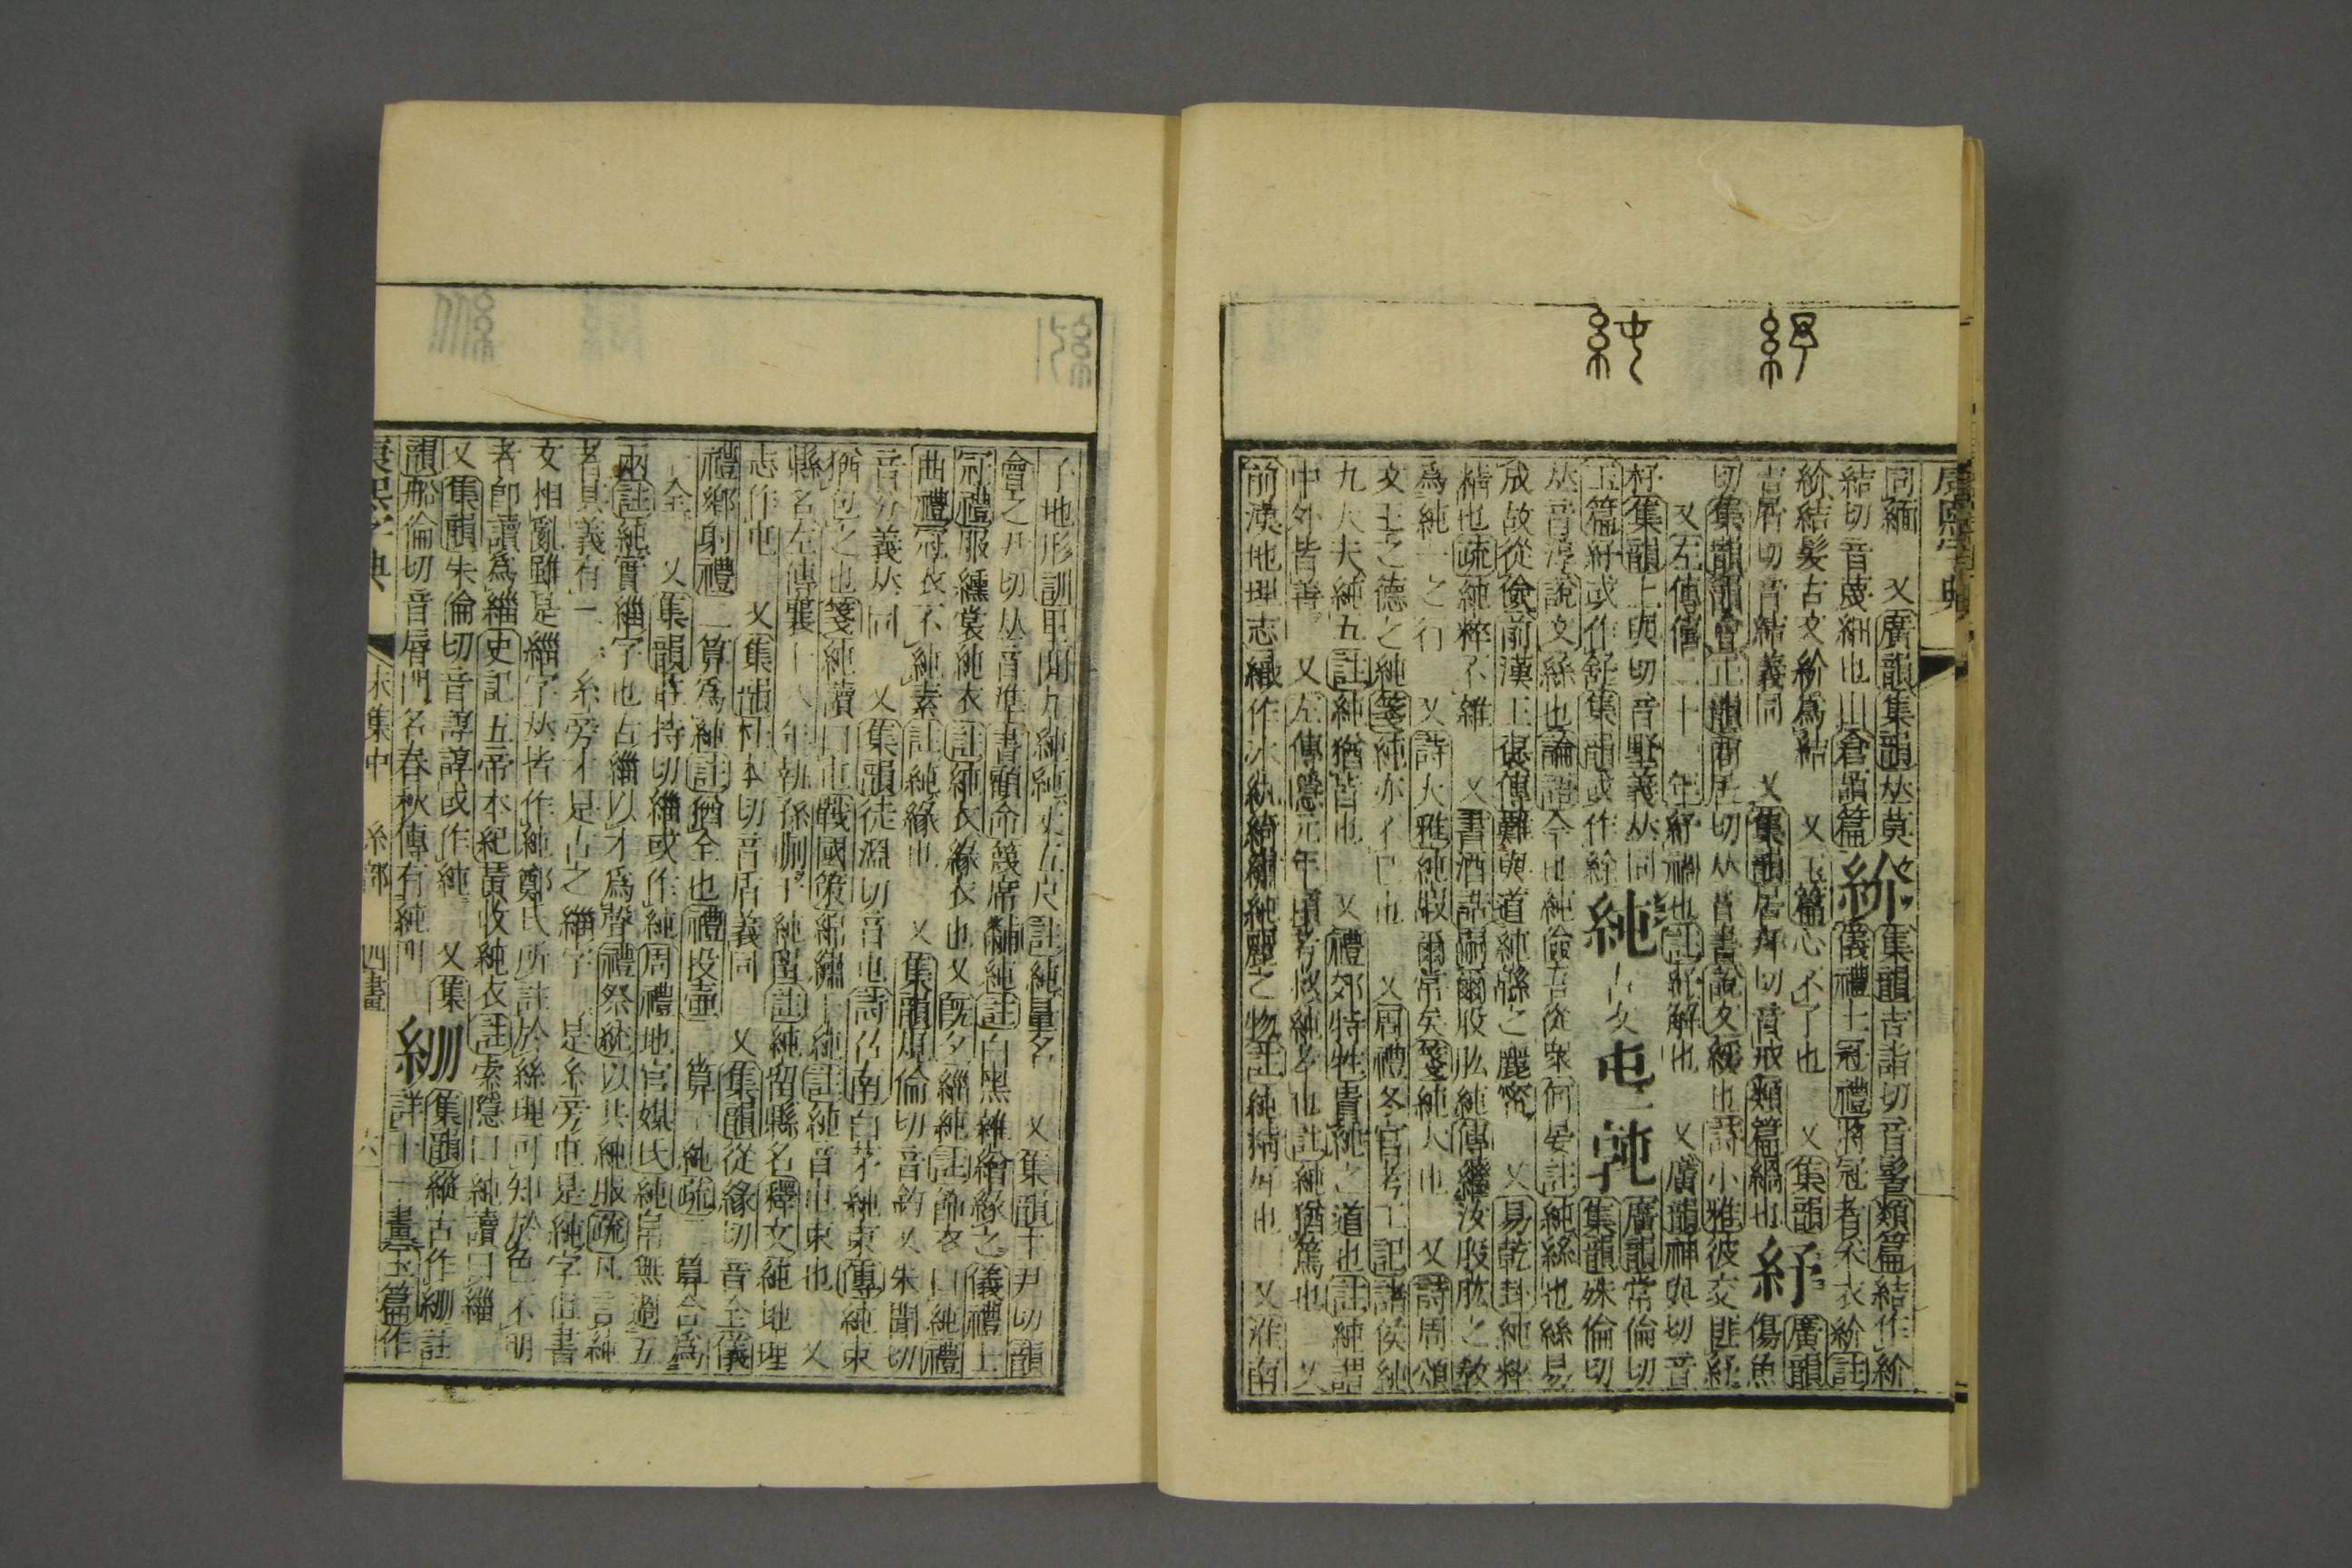 紓
純
康熙字典
同緬　又廣韻集韻𠀤莫
結切音蔑細也出倉頡篇
紒
集韻吉詣切音髻類篇結作紒
儀禮士冠禮將冠者采衣紒註
紒結髮古文紒爲結　又玉篇心不了也　又集韻
吉屑切音結義同　又集韻居拜切音戒類篇綱也
紓
廣韻
傷魚
切集韻韻會正韻商居切𠀤音書說文緩也詩小雅彼交匪紓
又左傳僖二十一年紓禍也註紓解也　又廣韻神與切音
杼集韻上與切音墅義𠀤同
玉篇紓或作舒集韻或作紾
純
古文
廣韻常倫切
集韻殊倫切
𠀤音淳說文絲也論語今也純儉吾從衆何晏註純絲也絲易
成故從儉前漢王襃傳難與道純緜之麗密　又易乾卦純粹
精也疏純粹不雜　又書酒誥嗣爾股肱純傳繼汝股肱之敎
爲純一之行　又詩大雅純嘏爾常矣箋純大也　又詩周頌
文王之德之純箋純亦不已也　又周禮冬官考工記諸侯純
九大夫純五註純猶皆也　又禮郊特牲貴純之道也註純謂
中外皆善　又左傳隱元年潁考叔純孝也註純猶篤也　又
前漢地理志織作冰紈綺繡純麗之物註純精好也　又淮南
子地形訓里閒九純純丈五尺註純量名　又集韻主尹切韻
會之尹切𠀤音準書顧命篾席黼純註白黑雜繒緣之儀禮士
冠禮服纁裳純衣註純衣緣衣也又旣夕緇純註飾衣曰純禮
曲禮冠衣不純素註純緣也　又集韻規倫切音鈞又朱閏切
音義𠀤同　又集韻徒渾切音屯詩召南白茅純束傳純束
猶包之也箋純讀曰屯戰國策綿繡千純註純音屯束也　又
縣名左傳襄十八年執孫蒯于純留註純留縣名釋文純地理
志作屯　又集韻杜本切音盾義同　又集韻從緣切音全儀
禮鄕射禮二算爲純註猶全也禮投壺二算爲純疏二算合爲
一全　又集韻莊持切緇或作純周禮地官媒氏純帛無過五
兩註純實緇字也古緇以才爲聲禮祭統以共純服疏凡言純
者其義有二一糸旁才是古之緇字二是糸旁屯是純字但書
文相亂雖是緇字𠀤皆作純鄭氏所註於絲理可知於色不明
者卽讀爲緇史記五帝本紀黃收純衣註索隱曰純讀曰緇
又集韻朱倫切音諄諄或作純　又集
韻船倫切音脣門名春秋傳有純門
集韻縱古作註
詳十一畫玉篇作
康熙字典　未集中　糸部　四畫　六